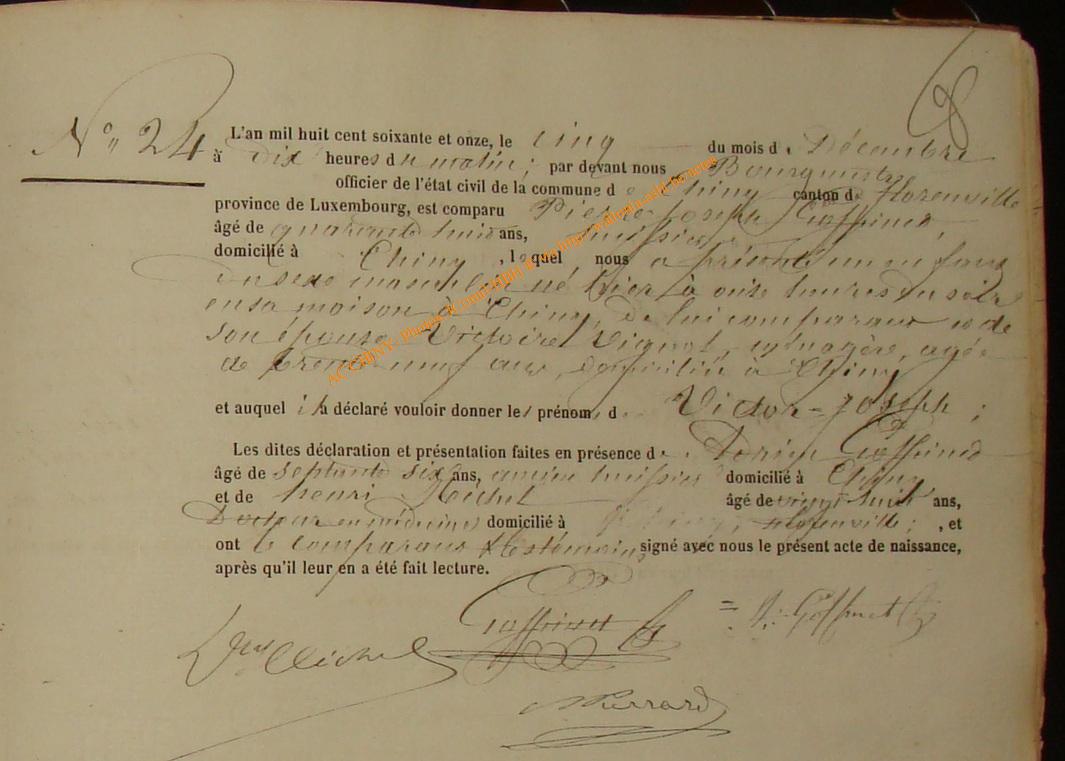 8
N° 24
L'an mil huit cent soixante et onze, le cinq du mois de Décembre
à dix heures du matin; par devant nous Bourgmestre
officier de l'état civil de la commune de Chiny canton de Florenville
province de Luxembourg, est comparu Pierre-Joseph Goffinet,
âgé de quarante huit ans, huissier
domicilié à Chiny, lequel nous a présenté un enfant
du sexe masculin né hier à onze heures du soir
en sa maison à Chiny, de lui comparant et de
son épouse Victoire Vignol, ménagère, agée
de trente-neuf ans, domiciliée à Chiny
et auquel il a déclaré vouloir donner les prénoms de Victor-Joseph;
Les dites déclaration et présentation faites en présence de Goffinet
âgé de septante six ans, ancien huissier domicilié à Chiny
et de henri Michel âgé de vingt huit ans,
Docteur en médecine domicilié à Florenville; , et
ont le comparant & les témoins signé avec nous le présent acte de naissance,
après qu'il leur en a été fait lecture.
Goffinet
Goffinet
Michel
Pierrard